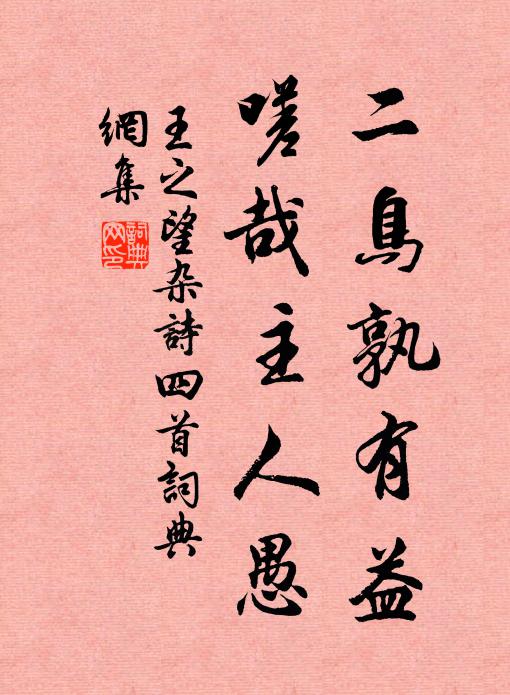 二鳥孰有益
嗟哉主人愚
王之望杂詩四首詞典
網集
詞典
网印